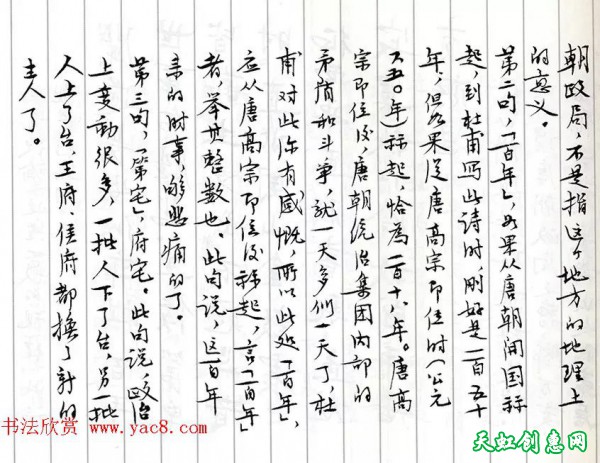 朝政局，不是指这个地方的地理上
的意义。
第二句，「百年」，如果从唐朝开国称
起，到杜甫写此诗时，刚好是一百五十
年，但如果从唐高宗即位时（公元
六五〇年）称起，恰为一百十八年。唐高
宗即位后，唐朝统治集团内部的
矛盾和斗争，就一天多似一天了，杜
甫对此深有感慨，所以此处「百年」，
应从唐高宗即位后称起，言「百年」
者，举其整数也。此句说，这一百年
来的时事，够悲痛的了。
第三句，「第宅」，府宅。此句说，政治
上变动很多，一批人下了台，另一批
人上了台，王府、侯府都换了新的
主人了。
书法欣赏 www.yac8.com
天虹创惠网